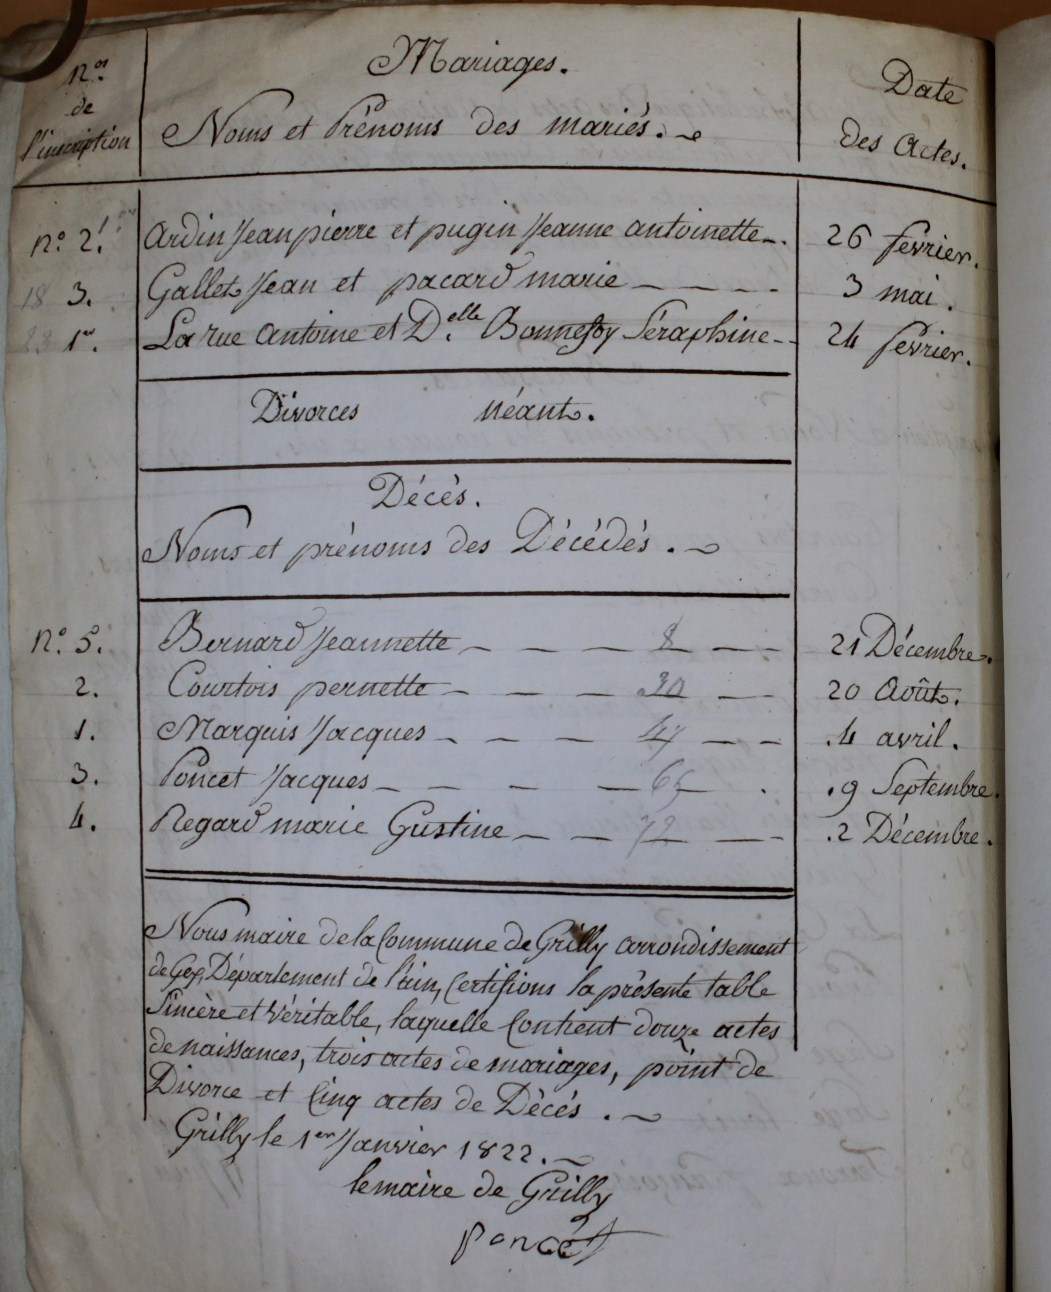 Nos
de
l'inscription
Mariages.
Noms et Prénoms des mariés.
Date
des Actes.
No. 2. Ardin Jean pierre et pugin Jeanne antoinette 26 février.
3. Gallet Jean et pacard marie 3 mai.
1er. La rue Antoine et D.elle Bonnefoy Séraphine 24 février.
Divorces néant.
Décès.
Noms et prénoms des Décédés.
No. 5. Bernard Jeannette 8 21 Décembre.
2. Courtois pernette 30 20 Août.
1. Marquis Jacques 47 .4 avril.
3. Poncet Jacques 65 .9 Septembre.
4. Regard marie Gustine 72 .2 Décembre.
Nous maire de la Commune de Grilly arrondissement
de Gex, Département de l'ain, Certifions la présente table
Sincère et Véritable, laquelle Contient douze actes
de naissances, trois actes de mariages, point de
Divorce et Cinq actes de Décès.
Grilly le 1er Janvier 1822.
le maire de Grilly
poncet